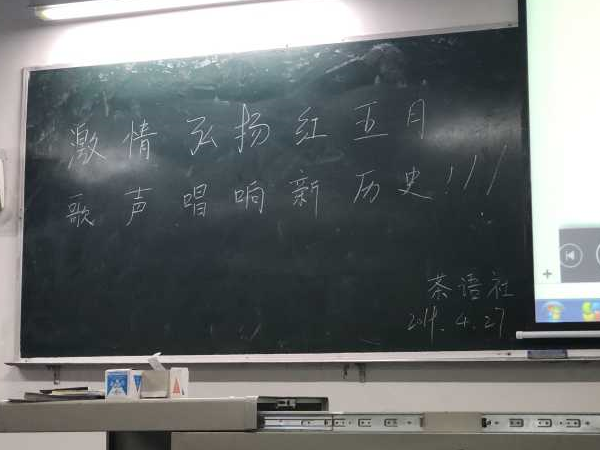 激情弘扬红五月
歌声唱响新历史!!!
茶语社
2019.4.27